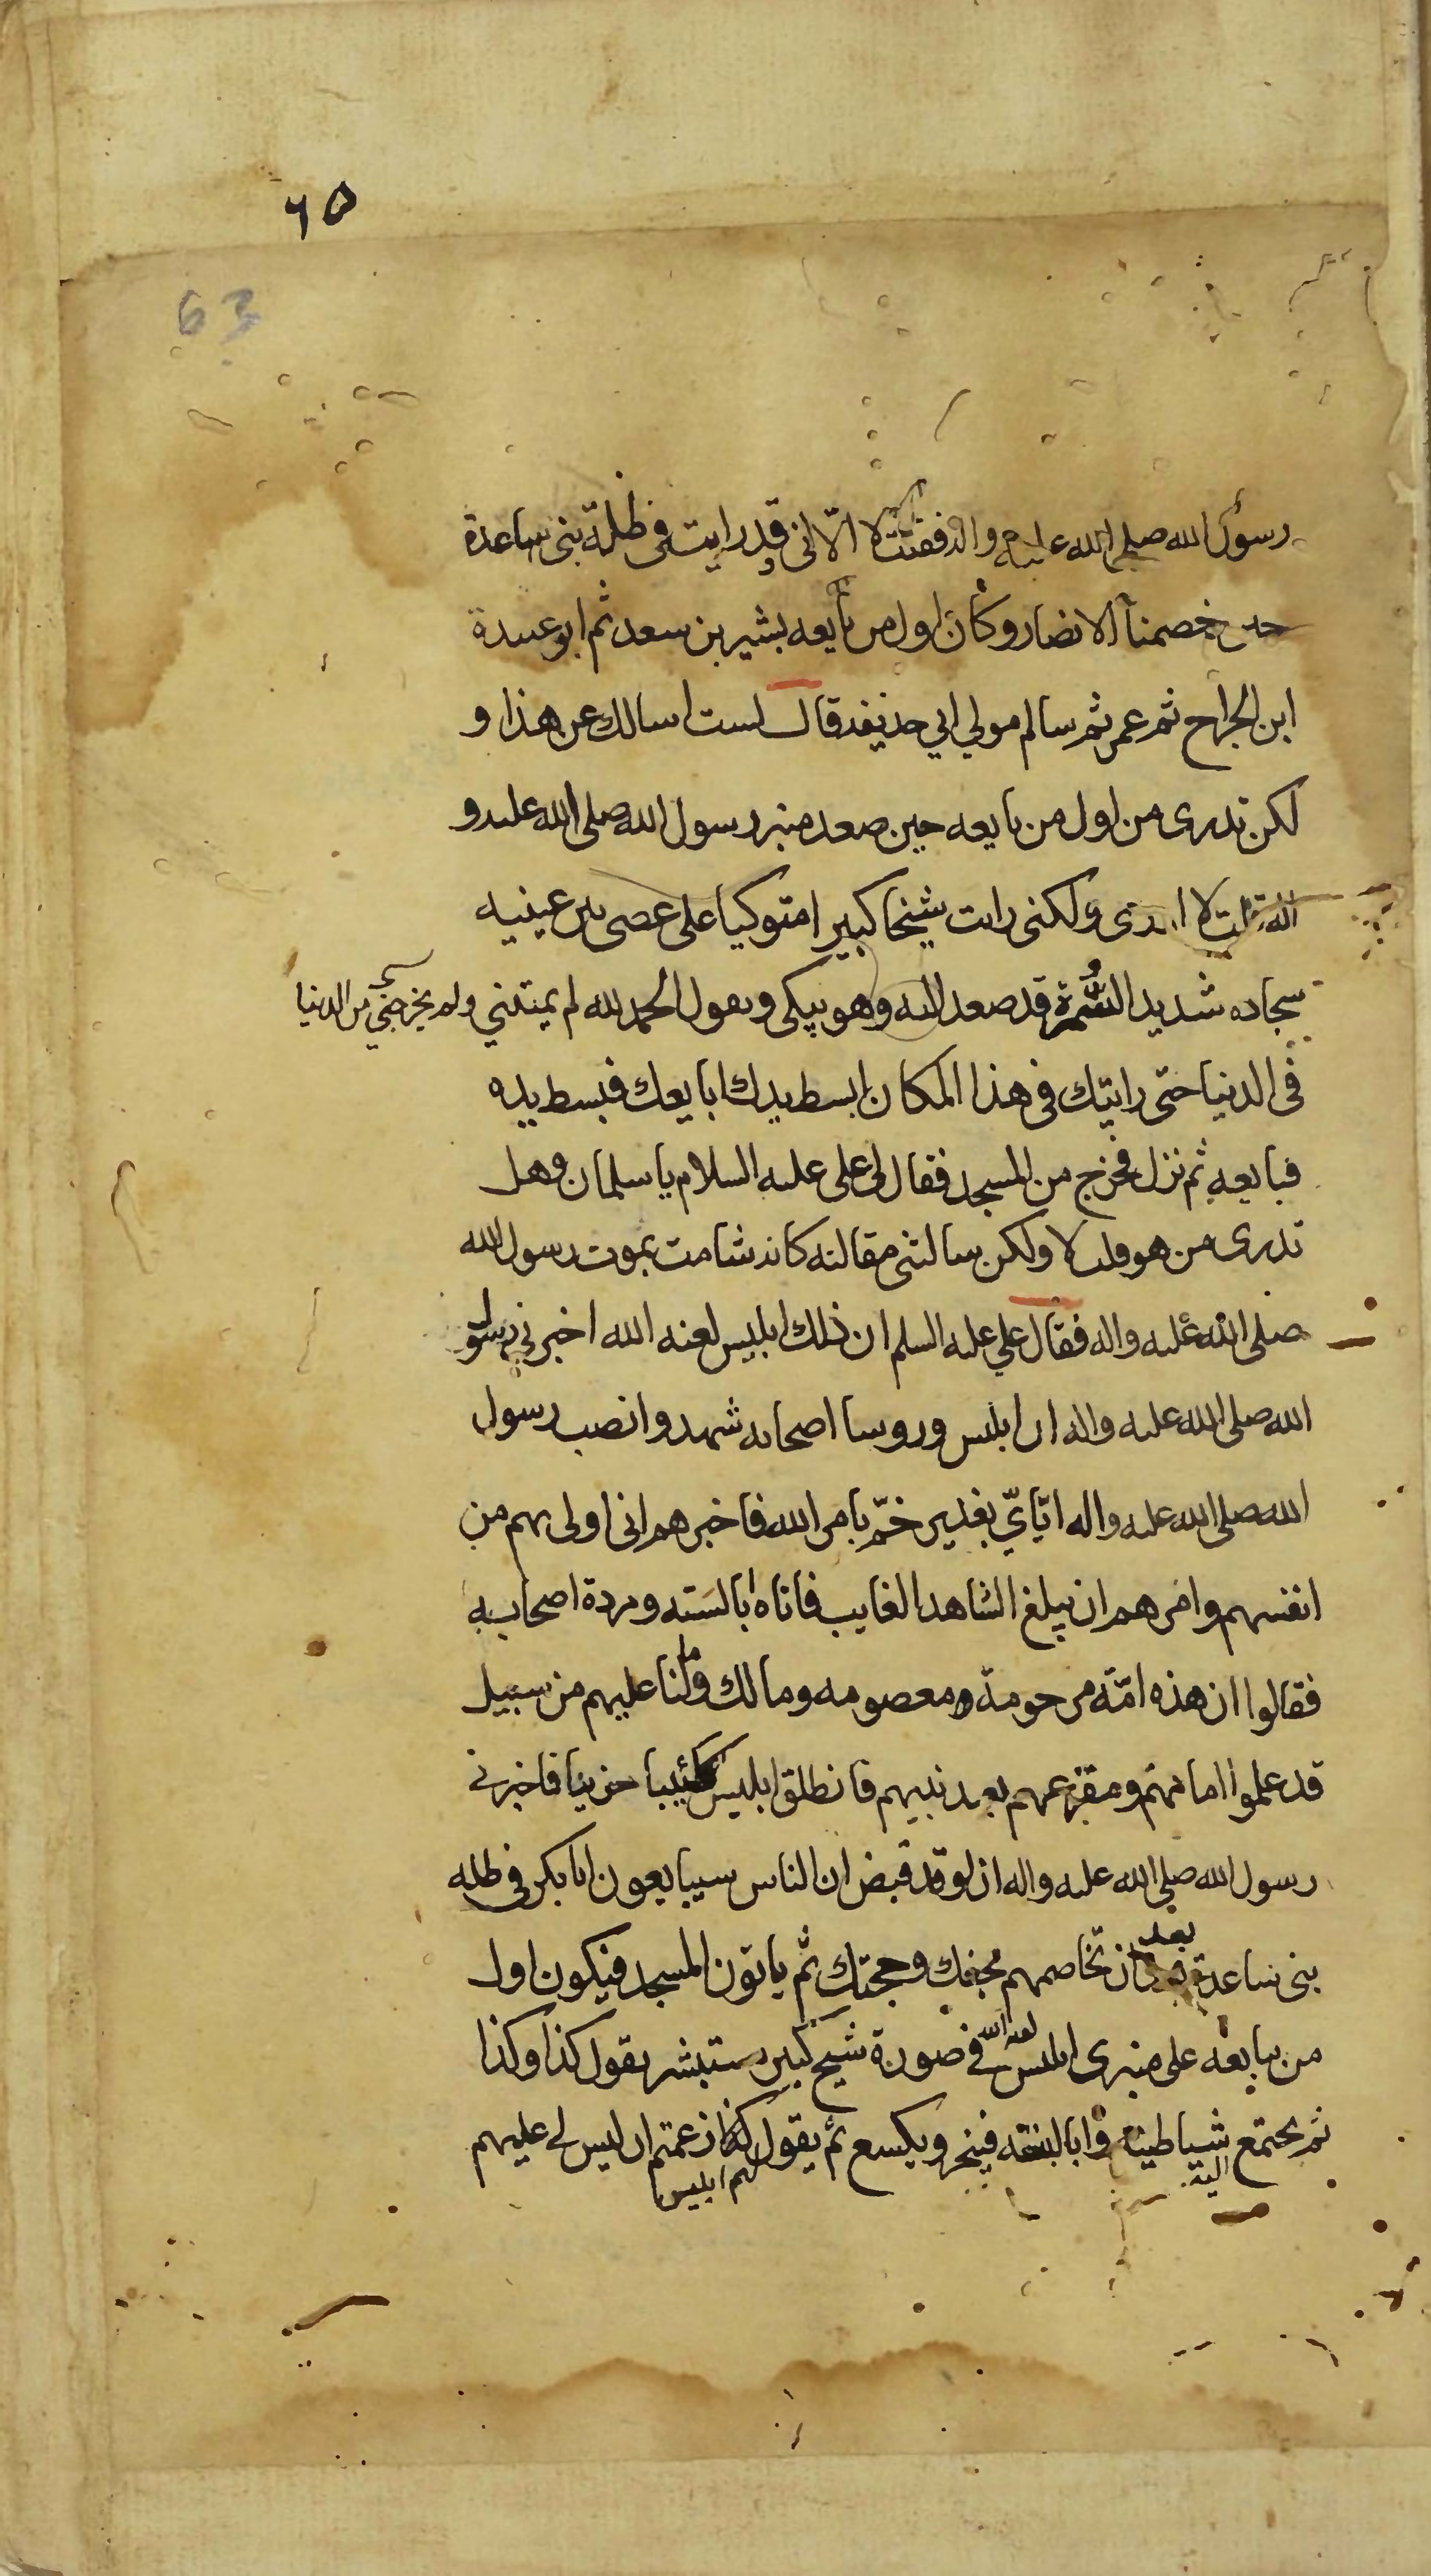 ٦٥
63
رسول الله صلى الله عليه واله فقلت لا الا انى قد رايت فى ظلة بنى ساعدة
حين خصمنا الانصار وكان اول من بايعه بشير بن سعد ثم ابو عبيدة
ابن الجراح ثم عمر ثم سالم مولي ابي حذيفه قال لست اسالك عن هذا و
لكن تدرى من اول من بايعه حين صعد منبر رسول الله صلى الله عليه و
اله قلت لا ادرى ولكنى رايت شيخا كبيرا متوكيا على عصى بين عينيه
سجاده شديد التشمرة قد صعد اليه وهو يبكى ويقول الحمد لله لم يمتني ولم يخرجني من الدنيا
فى الدنيا حتى رايتك فى هذا المكان ابسط يدك ابايعك فبسط يده
فبايعه ثم نزل فخرج من المسجد فقال لى على عليه السلام يا سلمان وهل
تدرى من هو قلت لا ولكن سالتنى مقالته كانه شامت بموت رسول الله
صلى الله عليه واله فقال علي عليه السلم ان ذلك ابليس لعنه الله اخبرني رسول
الله صلى الله عليه واله ان ابليس وروسا اصحابه شهدوا نصب رسول
الله صلى الله عليه واله ايّايّ بغدير خمّ بامر الله فاخبرهم انى اولى بهم من
انفسهم وامرهم ان يبلغ الشاهد الغايب فاتاه ابالسته ومردة اصحابه
فقالوا ان هذه امّة مرحومة ومعصومه وما لك وما لنا عليهم من سبيل
قد علموا امامهم ومفزعهم بعد نبيهم فانطلق ابليس كئيبا حزينا فاخبرنى
رسول الله صلي الله عليه واله ان لو قد قبض ان الناس سيبايعون ابا بكر فى ظله
بنى ساعدة بعد ان تخاصمهم بحقك وحجتك ثم ياتون المسجد فيكون اول
من يبايعه على منبرى ابليس لعنه الله فى صورة شيخ كبير مستبشر يقول كذا وكذا
ثم يجتمع اليه شياطينه وابالسته فينخر ويكسع ثم يقول لهم ابليس كذا زعمتم ان ليس لى عليهم